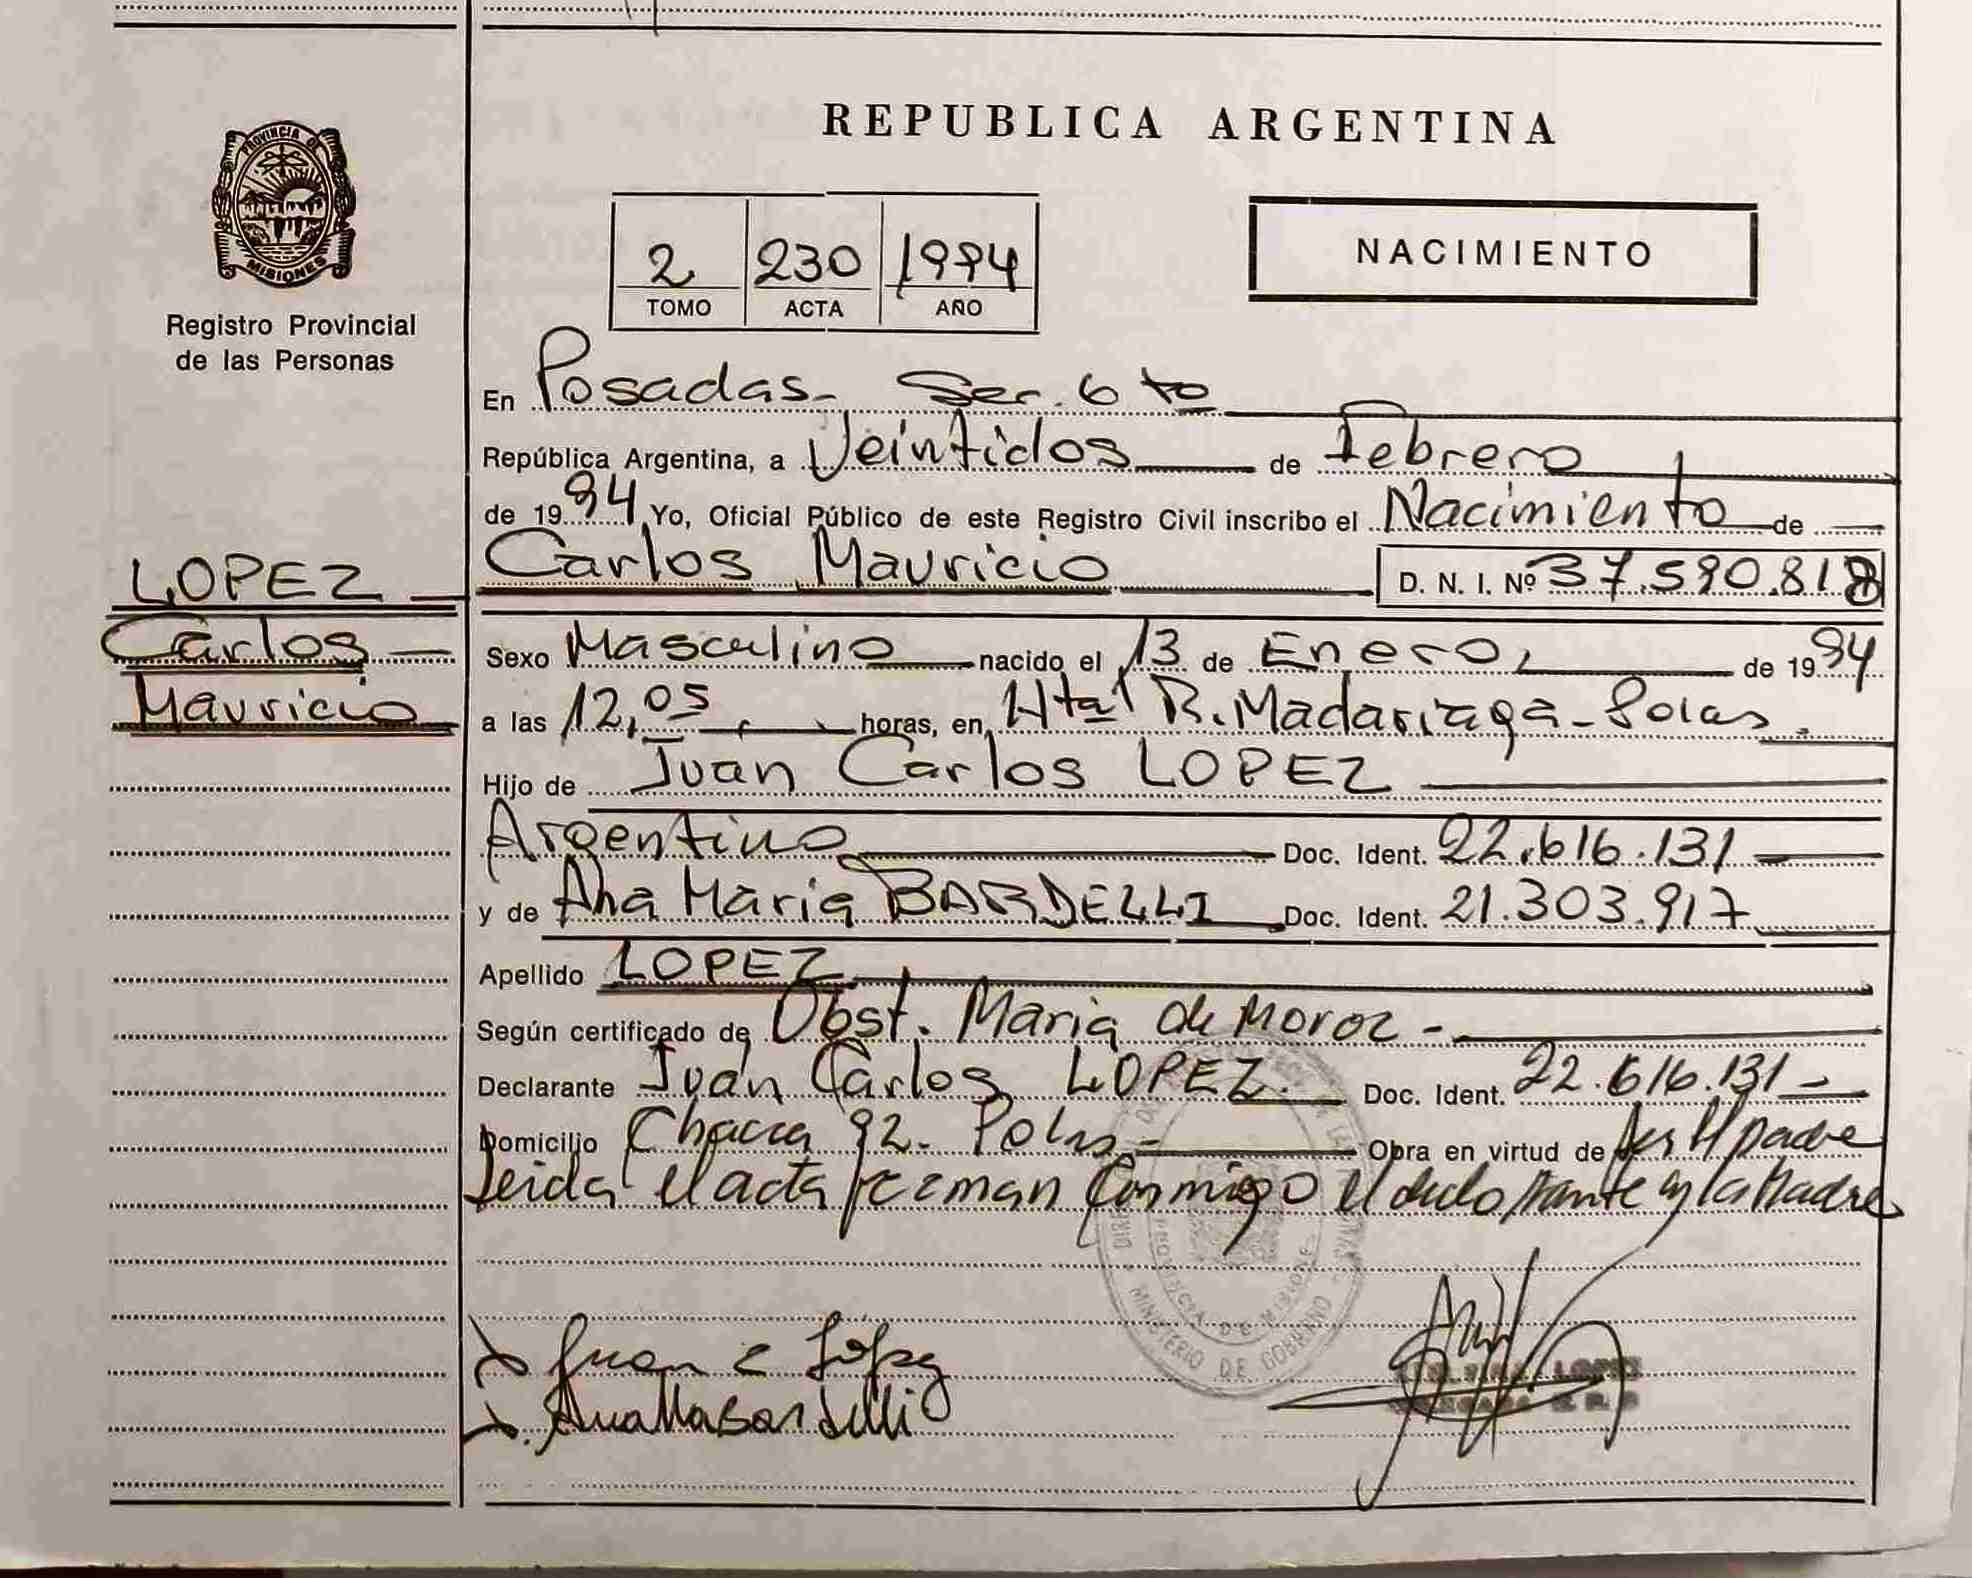 REPUBLICA ARGENTINA
PROVINCIA DE MISIONES
Registro Provincial
de las Personas
2 230 1994
TOMO ACTA AÑO
NACIMIENTO
En Posadas- Sec. 6 to
República Argentina, a Veintidos de Febrero
de 1994 Yo, Oficial Público de este Registro Civil inscribo el Nacimiento de
LOPEZ
Carlos
Mauricio
Carlos Mauricio D. N. I. Nº 37.590.818
Sexo Masculino nacido el 13 de Enero, de 1994
a las 12,05 horas, en Htal R. Madariaga-
Hijo de Juan Carlos LOPEZ
Argentino Doc. Ident. 22.616.131
y de Ana Maria BARDELLI Doc. Ident. 21.303.917
Apellido LOPEZ
Según certificado de Obst. Maria de Moroz -
Declarante Juan Carlos LOPEZ. Doc. Ident. 22.616.131
Domicilio Chacra 92. Obra en virtud de Ser el padre
Leida el acta firman conmigo el declarante y la Madre
PROVINCIA DE MISIONES
MINISTERIO DE GOBIERNO
Juan C López
Ana Ma Bardelli
LOPEZ